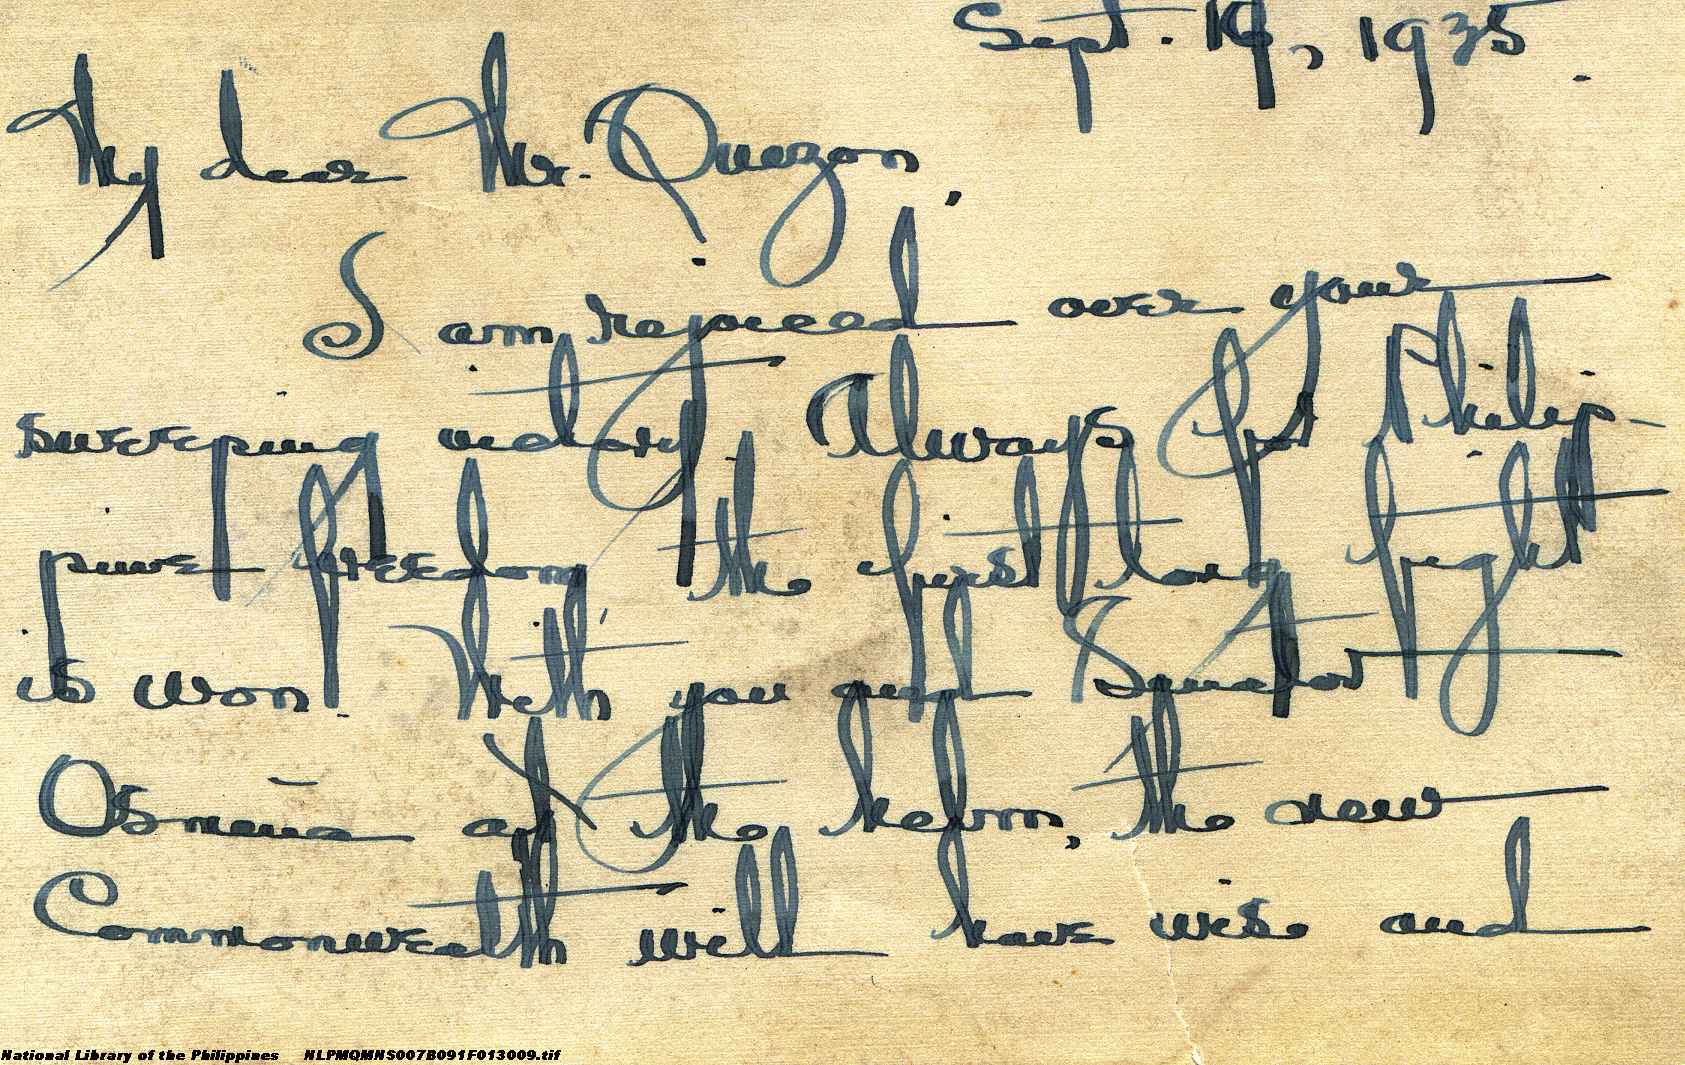 Sept. 19, 1935
My dear Mr. Quezon,
I am rejoiced over your
sweeping victory. Always for Philip-
pine freedom, the first long fight
is won. With you and Senator
Osmeña at the helm, the new
Commonwealth will have wise and
National Library of the Philippines NLPMQMNS007B091F013009.tif